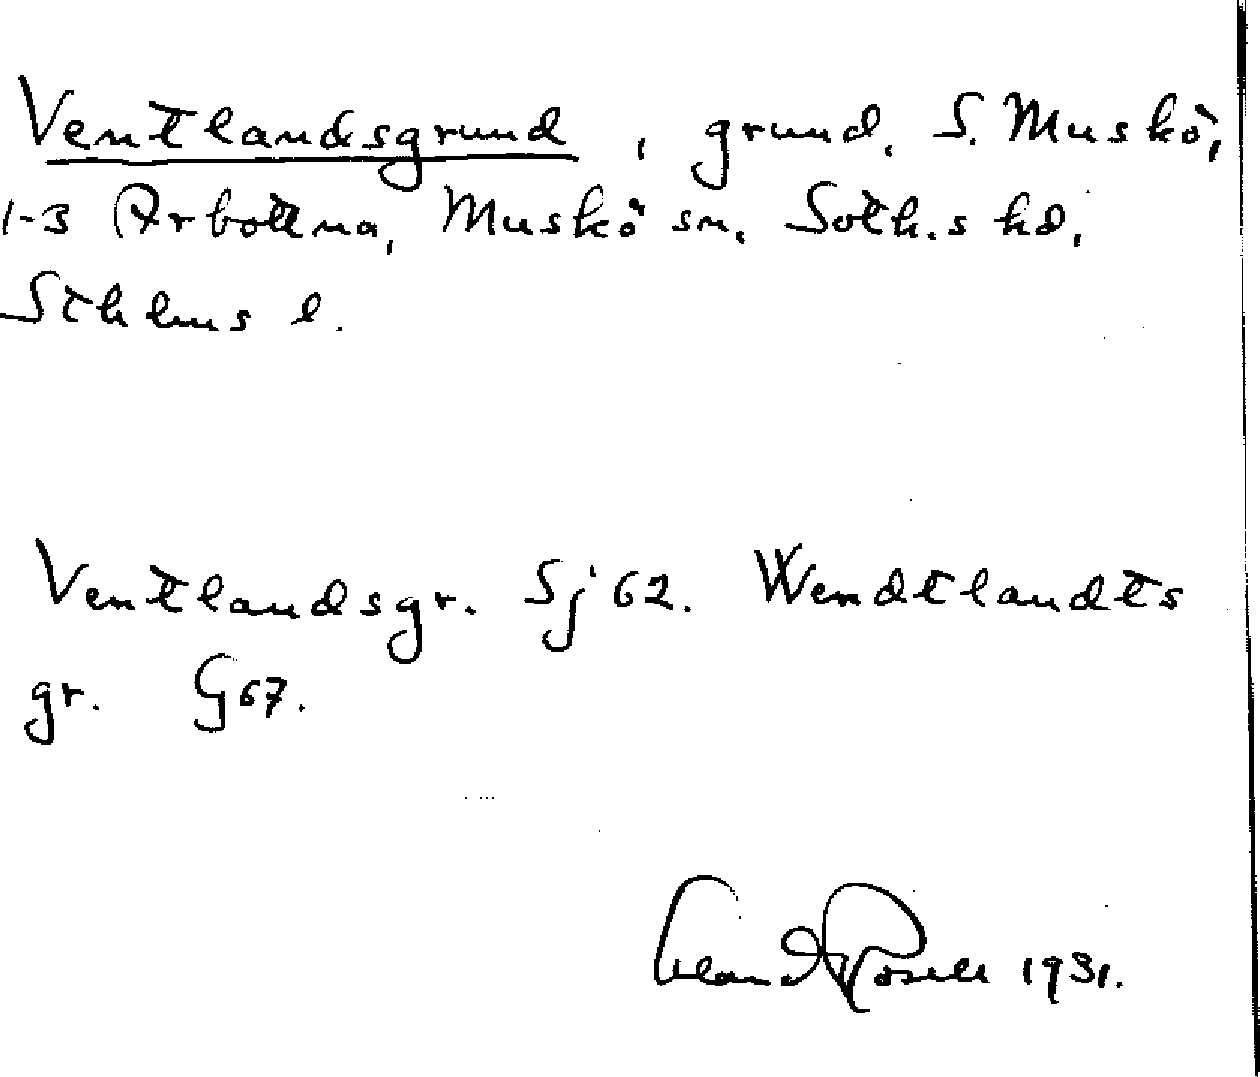 Ventlandsgrund, grund, S. Muskö,
1-3 Arbottna, Muskö sn, Soth.s hd,
Sthlms l.
Ventlandsgr. Sj 62. Wendtlandts
gr. G 67.
1931.